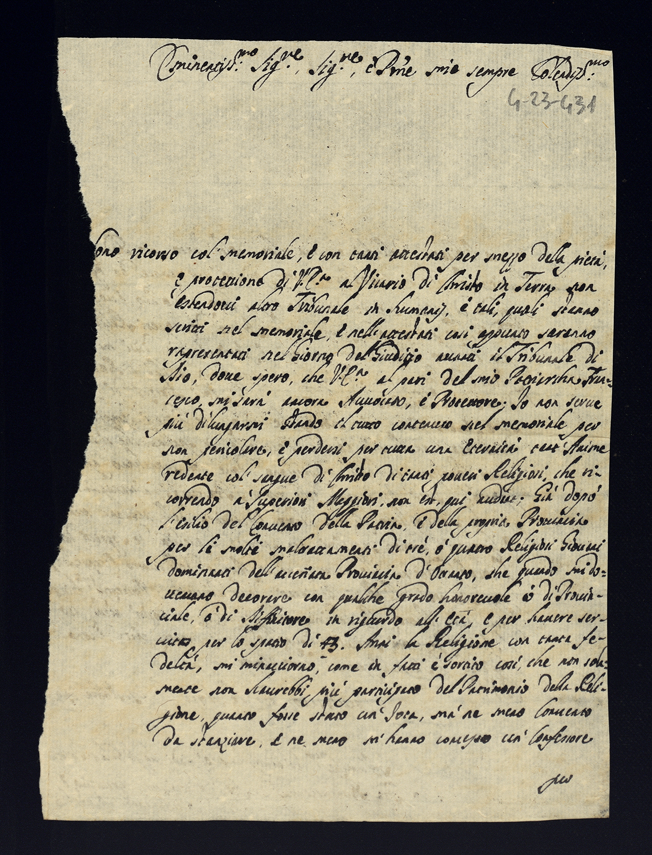 Eminentiss.mo Sig.re, Sig.re, e Pñe mio sempre Colendiss.mo
4-23-431
Sono ricorso col' memoriale, è con tanti attestati per mezzo della pietà,
e protettione di V.E. al Vicario di Christo in Terra non
estendoci altro Tribunale in humanis, è tali, quali stanno
scritti nel memoriale, è nell'attestati così appunto saranno
rapresentati nel Giorno del Giudizio avanti il Tribunale di
Dio, doue spero, che V.E. al pari del mio Patriarcha Fran-
cesco, mi sarà ancora Auuocato, è Protettore. Io non serue
più dilungarmi stando il tutto contenuto nel memoriale per
non pericolare, è perdersi per tutta una Eternità tant'Anime
redente col sangue di Christo di tanti poueri Religiosi, che ri-
correndo a Superiori Maggiori non est, qui audiat. Già dopò
l'esilio del Conuento della Patria, è della propria Prouincia
per li molti maltrattamenti di trè, ò quattro Religiosi Giouani
Dominanti dell' accennata Prouincia d'Otranto, che quando mi do-
ueuano decorare con qualche grado honoreuole ò di Prouin-
ciale, ò di Diffinitore in riguardo all' età, e per hauere ser-
uito per lo spatio di 43. Anni la Religione con tanta fe-
deltà, mi minacciorno, come in fatti è sortito così, che non sola-
mente non haurebbi più participato del Patrimonio della Reli-
gione, quanto fosse stato un' Iota, mà ne meno Conuento
da stanziare, è ne meno m'hanno concesso un' Confessore